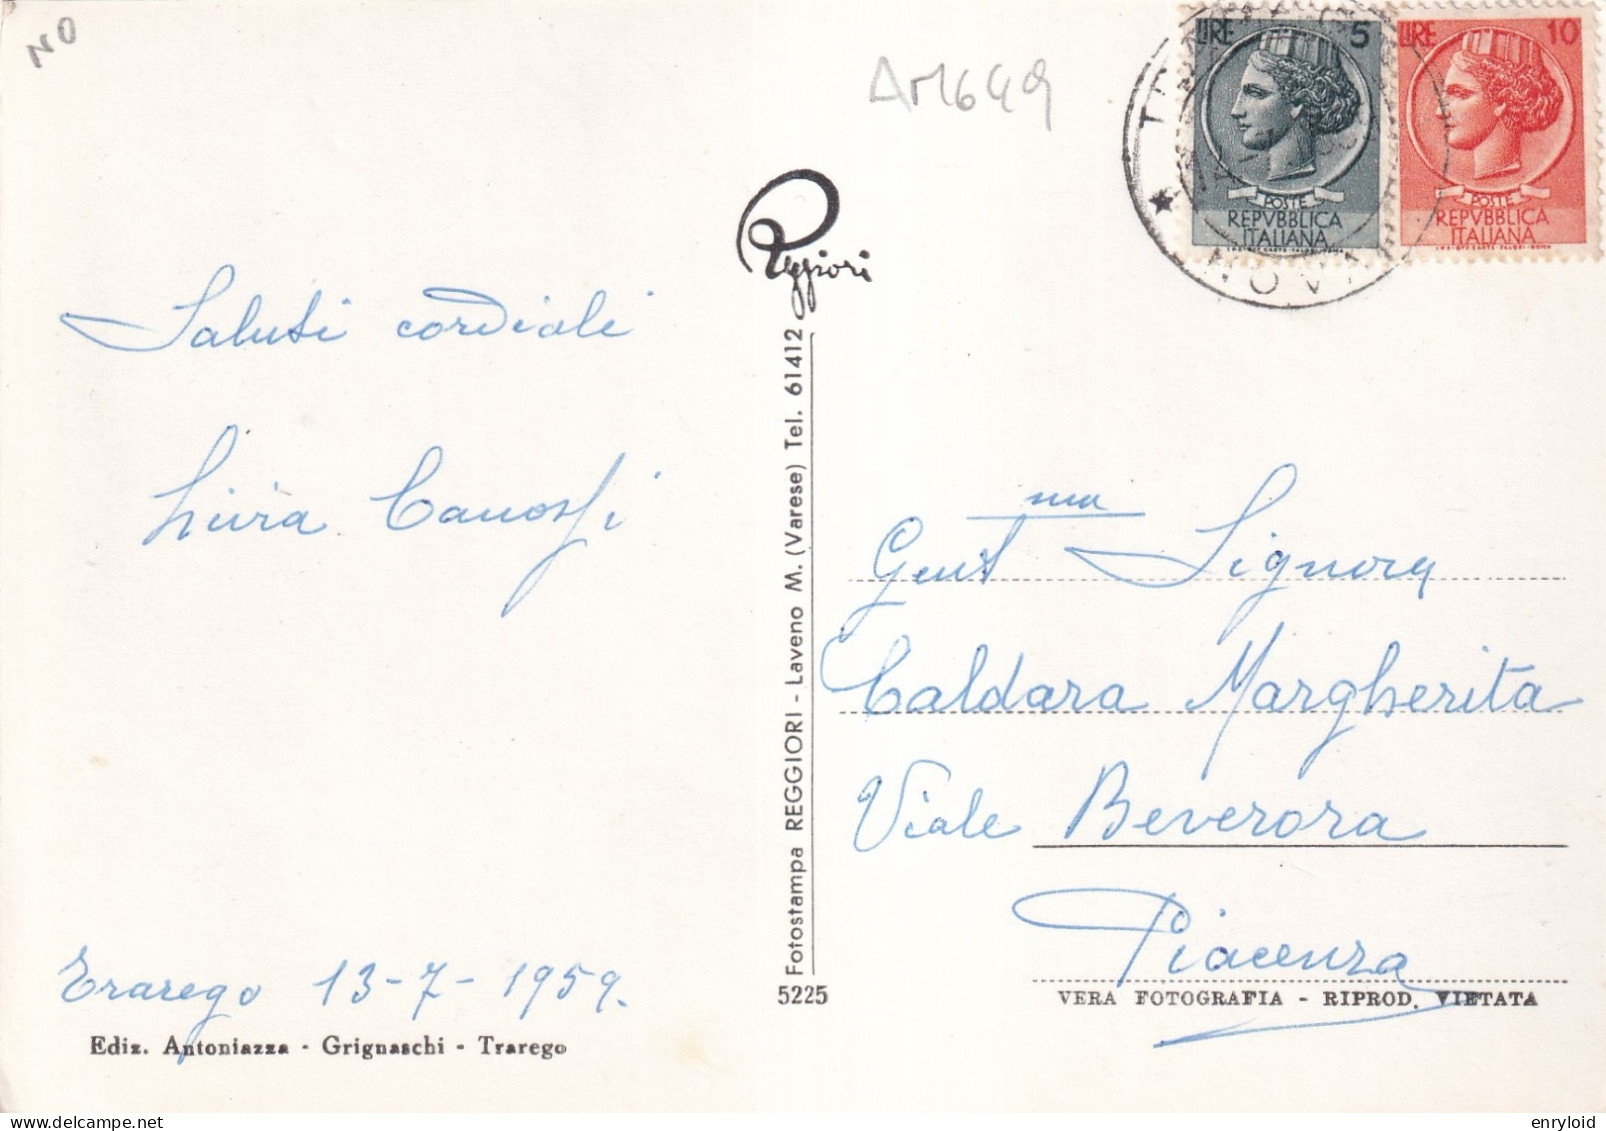 NO
AM649
LIRE 5
POSTE
REPVBBLICA
ITALIANA
LIRE 10
POSTE
REPVBBLICA
ITALIANA
NOVA
Reggiori
Saluti cordiali
Livia Canossi
Trarego 13-7-1959.
Ediz. Antoniazza - Grignaschi - Trarego
Fotostampa REGGIORI - Laveno M. (Varese) Tel. 61412
5225
Gent ma Signora
Caldara Margherita
Viale Beverora
Piacenza
VERA FOTOGRAFIA - RIPROD. VIETATA
enryloid